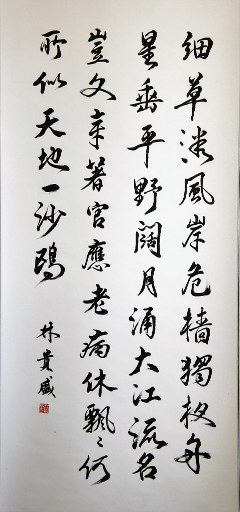 細草微風岸危檣獨夜舟
星垂平野闊月涌大江流名
豈文章著官應老病休飄〻何
所似天地一沙鷗
林貴盛